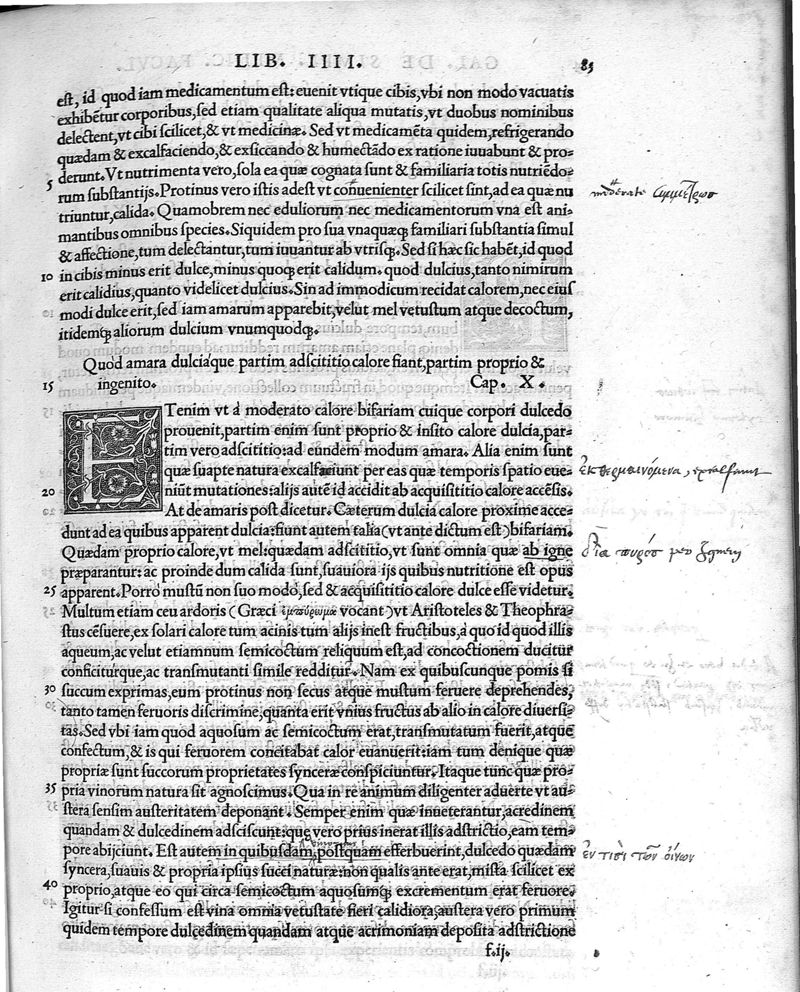 LIB. IIII. 85
est, id quod iam medicamentum est: euenit vtique cibis, vbi non modo vacuatis
exhibẽtur corporibus, sed etiam qualitate aliqua mutatis, vt duobus nominibus
delectent, vt cibi scilicet, & vt medicinæ. Sed vt medicamẽta quidem, refrigerando
quædam & excalfaciendo, & exsiccando & humectãdo ex ratione iuuabunt & pro-
5 derunt. Vt nutrimenta vero, sola ea quæ cognata sunt & familiaria totis nutriẽdo-
rum substantijs. Protinus vero istis adest vt conuenienter scilicet sint, ad ea quæ nu
moderate
triuntur, calida. Quamobrem nec eduliorum nec medicamentorum vna est ani-
mantibus omnibus species. Siquidem pro sua vnaquæq; familiari substantia simul
& affectione, tum delectantur, tum iuuantur ab vtrisq;. Sed si hæc sic habẽt, id quod
10 in cibis minus erit dulce, minus quoq; erit calidum. quod dulcius, tanto nimirum
erit calidius, quanto videlicet dulcius. Sin ad immodicum recidat calorem, nec eius
modi dulce erit, sed iam amarum apparebit, velut mel vetustum atque decoctum,
itidemq; aliorum dulcium vnumquodq;.
Quòd amara dulciaque partim adscititio calore fiant, partim proprio &
15 ingenito. Cap. X.
ETenim vt à moderato calore bifariam cuique corpori dulcedo
prouenit, partim enim sunt proprio & insito calore dulcia, par-
tim vero adscititio: ad eundem modum amara. Alia enim sunt
quæ suapte natura excalfaciunt per eas quæ temporis spatio eue-
ἐκθερμαινόμενα, excalfiunt
20 niũt mutationes: alijs autẽ id accidit ab acquisititio calore accẽsis.
At de amaris post dicetur. Cæterum dulcia calore proxime acce-
dunt ad ea quibus apparent dulcia: fiunt autem talia (vt ante dictum est) bifariam.
Quædam proprio calore, vt mel: quædam adscititio, vt sunt omnia quæ ab igne
διὰ πυρὸς
præparantur: ac proinde dum calida sunt, suauiora ijs quibus nutritione est opus
25 apparent. Porrò mustũ non suo modo, sed & acquisititio calore dulce esse videtur.
Multum etiam ceu ardoris (Græci ἐμπύρωμα vocant) vt Aristoteles & Theophra-
stus cẽsuere, ex solari calore tum acinis tum alijs inest fructibus, à quo id quod illis
aqueum, ac velut etiamnum semicoctum reliquum est, ad concoctionem ducitur
conficiturque, ac transmutanti simile redditur. Nam ex quibuscunque pomis si
30 succum exprimas, eum protinus non secus atque mustum feruere deprehendes,
tanto tamen feruoris discrimine, quanta erit vnius fructus ab alio in calore diuersi-
tas. Sed vbi iam quod aquosum ac semicoctum erat, transmutatum fuerit, atque
confectum, & is qui feruorem concitabat calor euanuerit: iam tum denique quæ
propriæ sunt succorum proprietates synceræ conspiciuntur. Itaque tunc quæ pro-
35 pria vinorum natura sit agnoscimus. Qua in re animum diligenter aduerte vt au-
stera sensim austeritatem deponant. Semper enim quæ inueterantur, acredinem
quandam & dulcedinem adsciscunt: que vero prius inerat illis adstrictio, eam tem-
pore abijciunt. Est autem in quibusdam, postquam efferbuerint, dulcedo quædam
ἐν τισὶ τῶν οἴνων
syncera, suauis & propria ipsius succi naturæ: non qualis ante erat, mista scilicet ex
40 proprio, atque eo qui circa semicoctum aquosumq; excrementum erat feruore.
Igitur si confessum est vina omnia vetustate fieri calidiora, austera vero primum
quidem tempore dulcedinem quandam atque acrimoniam deposita adstrictione
f.ij.